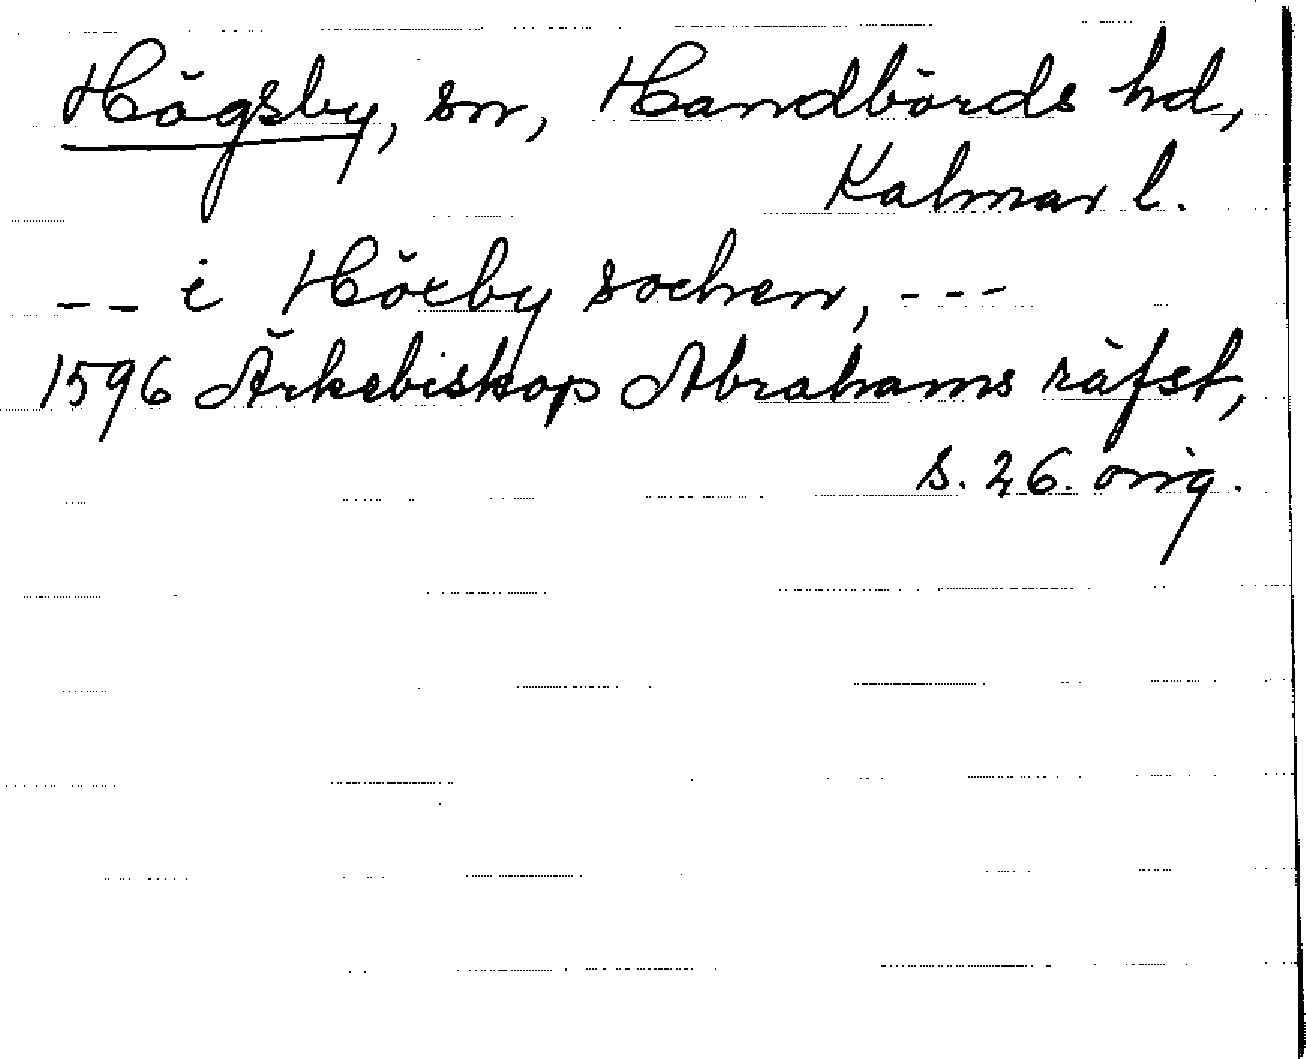 Högsby, sn, Handbörds hd,
Kalmar l.
-- i Höxby sochen, ---
1596 Ärkebiskop Abrahams räfst,
s. 26. orig.